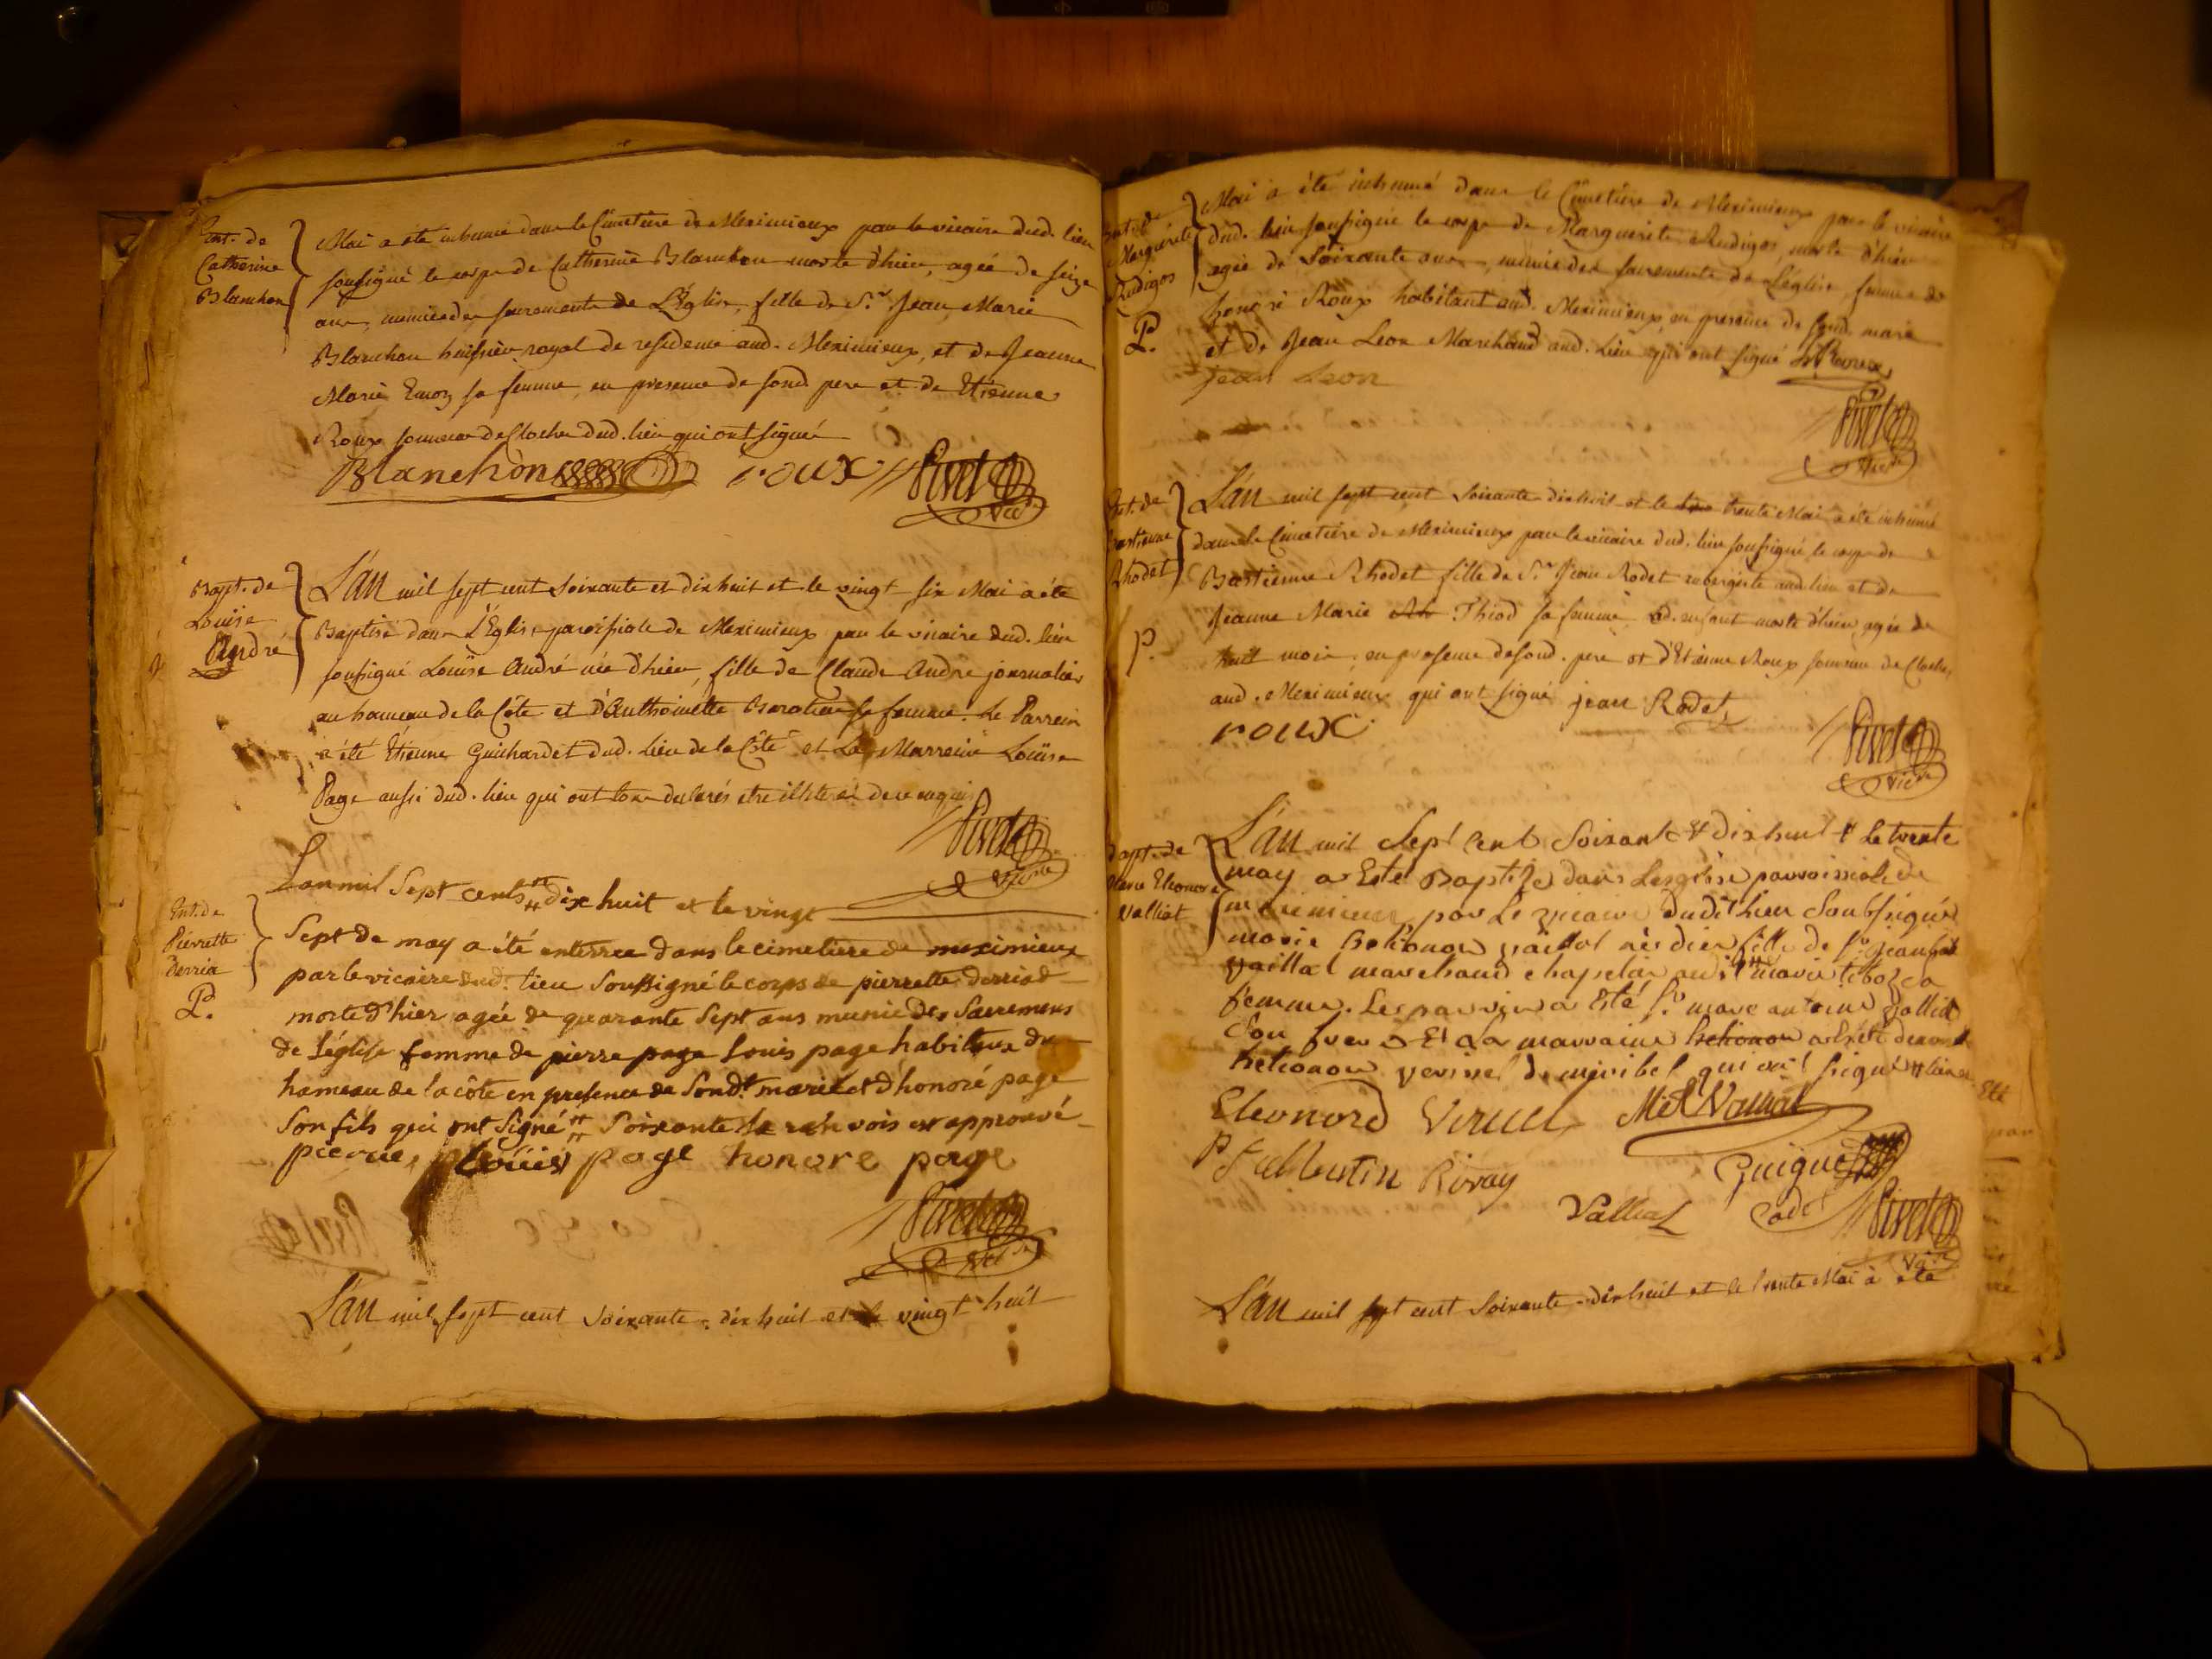 Ent. de
Catherine
Blanchon
Mai a été inhumé dans le Cimetière de Meximieux par le vicaire dud. lieu
soussigné le corps de Catherine Blanchon morte d'hier, agée de seize
ans, munie des sacrements de L'Eglise, fille de Sr. Jean Marie
Blanchon huissier royal de residence aud. Meximieux, et de Jeanne
Marie sa femme, en presence de sond. pere et de Etienne
Roux sonneur de Cloches dud. lieu qui ont signé
Blanchon roux Vic
Bapt. de
Louise
André
L'an mil sept cent soixante et dixhuit et le vingt six Mai a été
Baptisé dans L'Eglise paroissiale de Meximieux par le vicaire dud. lieu
soussigné Louise André née d'hier, fille de Claude André journalier
au hameau de la Côte et d'Anthoinette sa femme. Le Parrein
a été Etienne Guichardet dud. lieu de la Côte et La Marreine Louise
Page aussi dud. lieu qui ont declarés etre de ce enquis
Ent. de
Pierrette
Derria
P.
Lan mil Sept cents # dix huit et le vingt
Sept de may a été enterree dans le cimetiere de meximieux
par le vicaire dud. lieu Soussigné le corps de pierrette derriat
morte d'hier agée de quarante Sept ans munie des Sacremens
de L'église femme de pierre page Louis page habitans du
hameau de la côte en presence de Sondt. marié et d'honoré page
Son fils qui ont Signé # Soixante le renvois est approuvé
pierre, Louis page honore page
Vic
L'an mil sept cent soixante-dixhuit et le vingt huit
Ent. de
Marguerite
Rudigos
P.
Mai a été inhumé dans le Cimetière de Meximieux par le vicaire
dud. lieu soussigné le corps de Marguerite Rudigos, morte d'hier
agée de Soixante ans, munie des sacrements de L'église femme de
honoré Roux habitant aud. Meximieux, en presence de sond. mari
et de Jean Leon Marchand aud. Lieu qui ont signé
jean Leon
Ent. de
Bastienne
Rhodet
P.
L'an mil sept cent soixante dixhuit et le trente Mai a été inhumé
dans le Cimetière de Meximieux par le vicaire dud. lieu soussigné le corps de
Bastienne Rhodet fille de Sr. Jean Rodet aud. lieu et de
Jeanne Marie Thiod sa femme lad. enfant morte d'hier, agée de
huit mois, en presence de sond. pere et d'Etienne Roux sonneur de Cloches
aud. Meximieux qui ont signé jean Rodet
roux
Bapt. de
Marie Eleonore
Valliat
L'an mil Sept Cent Soixante et dix huit et Le trente
may a Esté Baptizé dans Lesglise parroissiale de
meximieux par Le vicaire dudit lieu Soubsigné
marie née d'hier fille de Sr
marchand chapelier audit
femme. Le parrain a Esté Sr. marc antoine
Son frere Et La marraine
qui ont signé
Eleonord
Guigue
Valliat
L'an mil sept cent soixante-dixhuit et le trente Mai à été